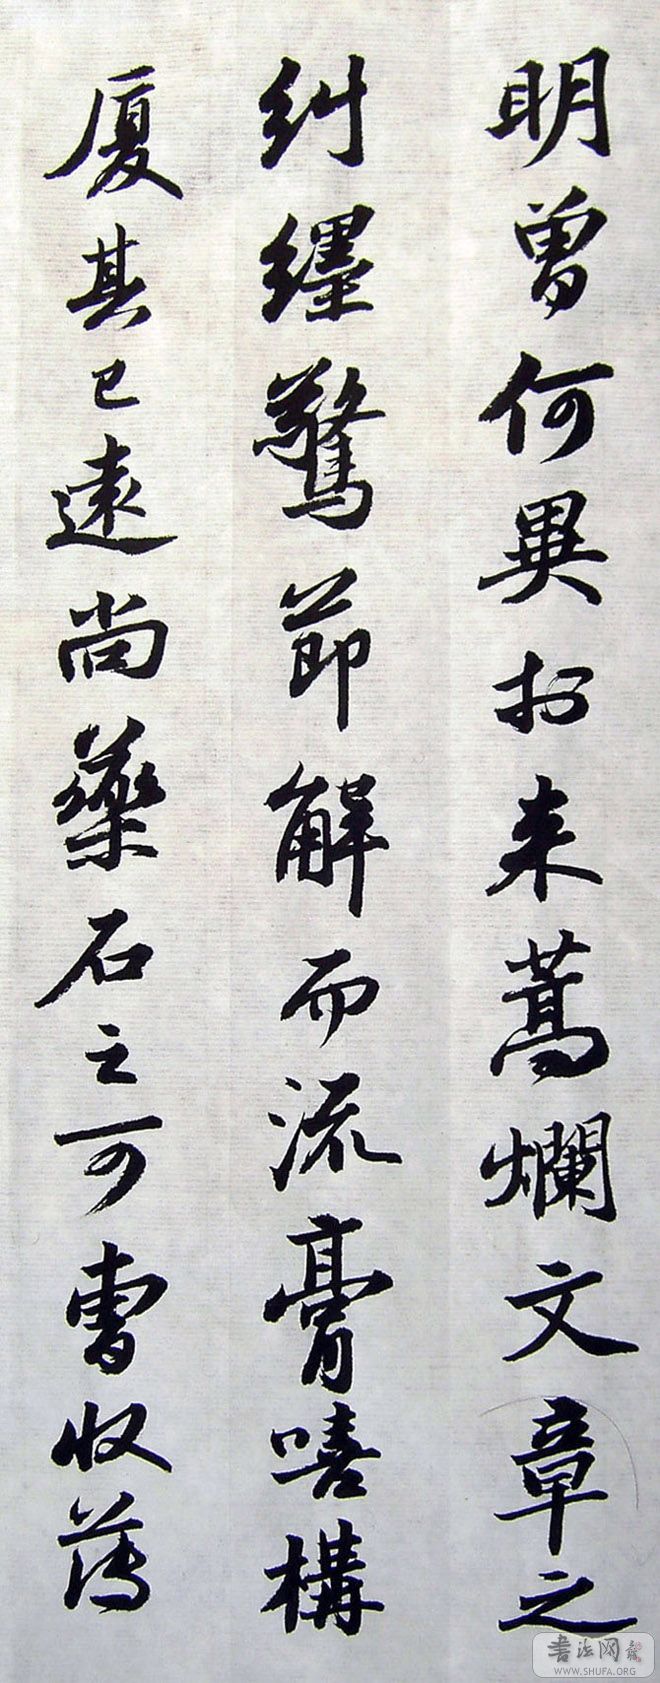 明曾何異扵来蒿爛文章之
糾纆驚節解而流膏嘻構
厦其已遠尚藥石之可曹收薄
書法网
WWW.SHUFA.ORG